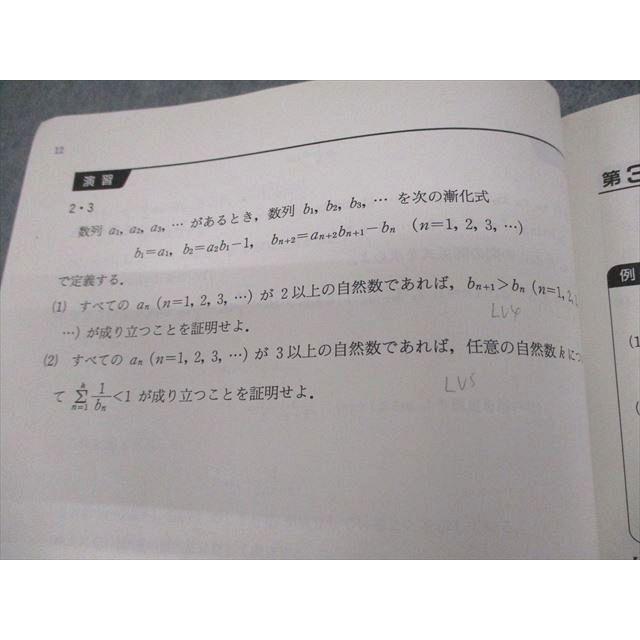 12
演習
2・3
数列 a₁, a₂, a₃, … があるとき，数列 b₁, b₂, b₃, … を次の漸化式
b₁=a₁, b₂=a₂b₁−1, bₙ₊₂=aₙ₊₂bₙ₊₁−bₙ (n=1, 2, 3, …)
で定義する．
(1) すべての aₙ (n=1, 2, 3, …) が 2 以上の自然数であれば，bₙ₊₁>bₙ (n=1, 2,
…) が成り立つことを証明せよ．
LV4
(2) すべての aₙ (n=1, 2, 3, …) が 3 以上の自然数であれば，任意の自然数 k につ
て \sum_{n=1}^{k} \frac{1}{bₙ}<1 が成り立つことを証明せよ．
LV5
第3
例
(1